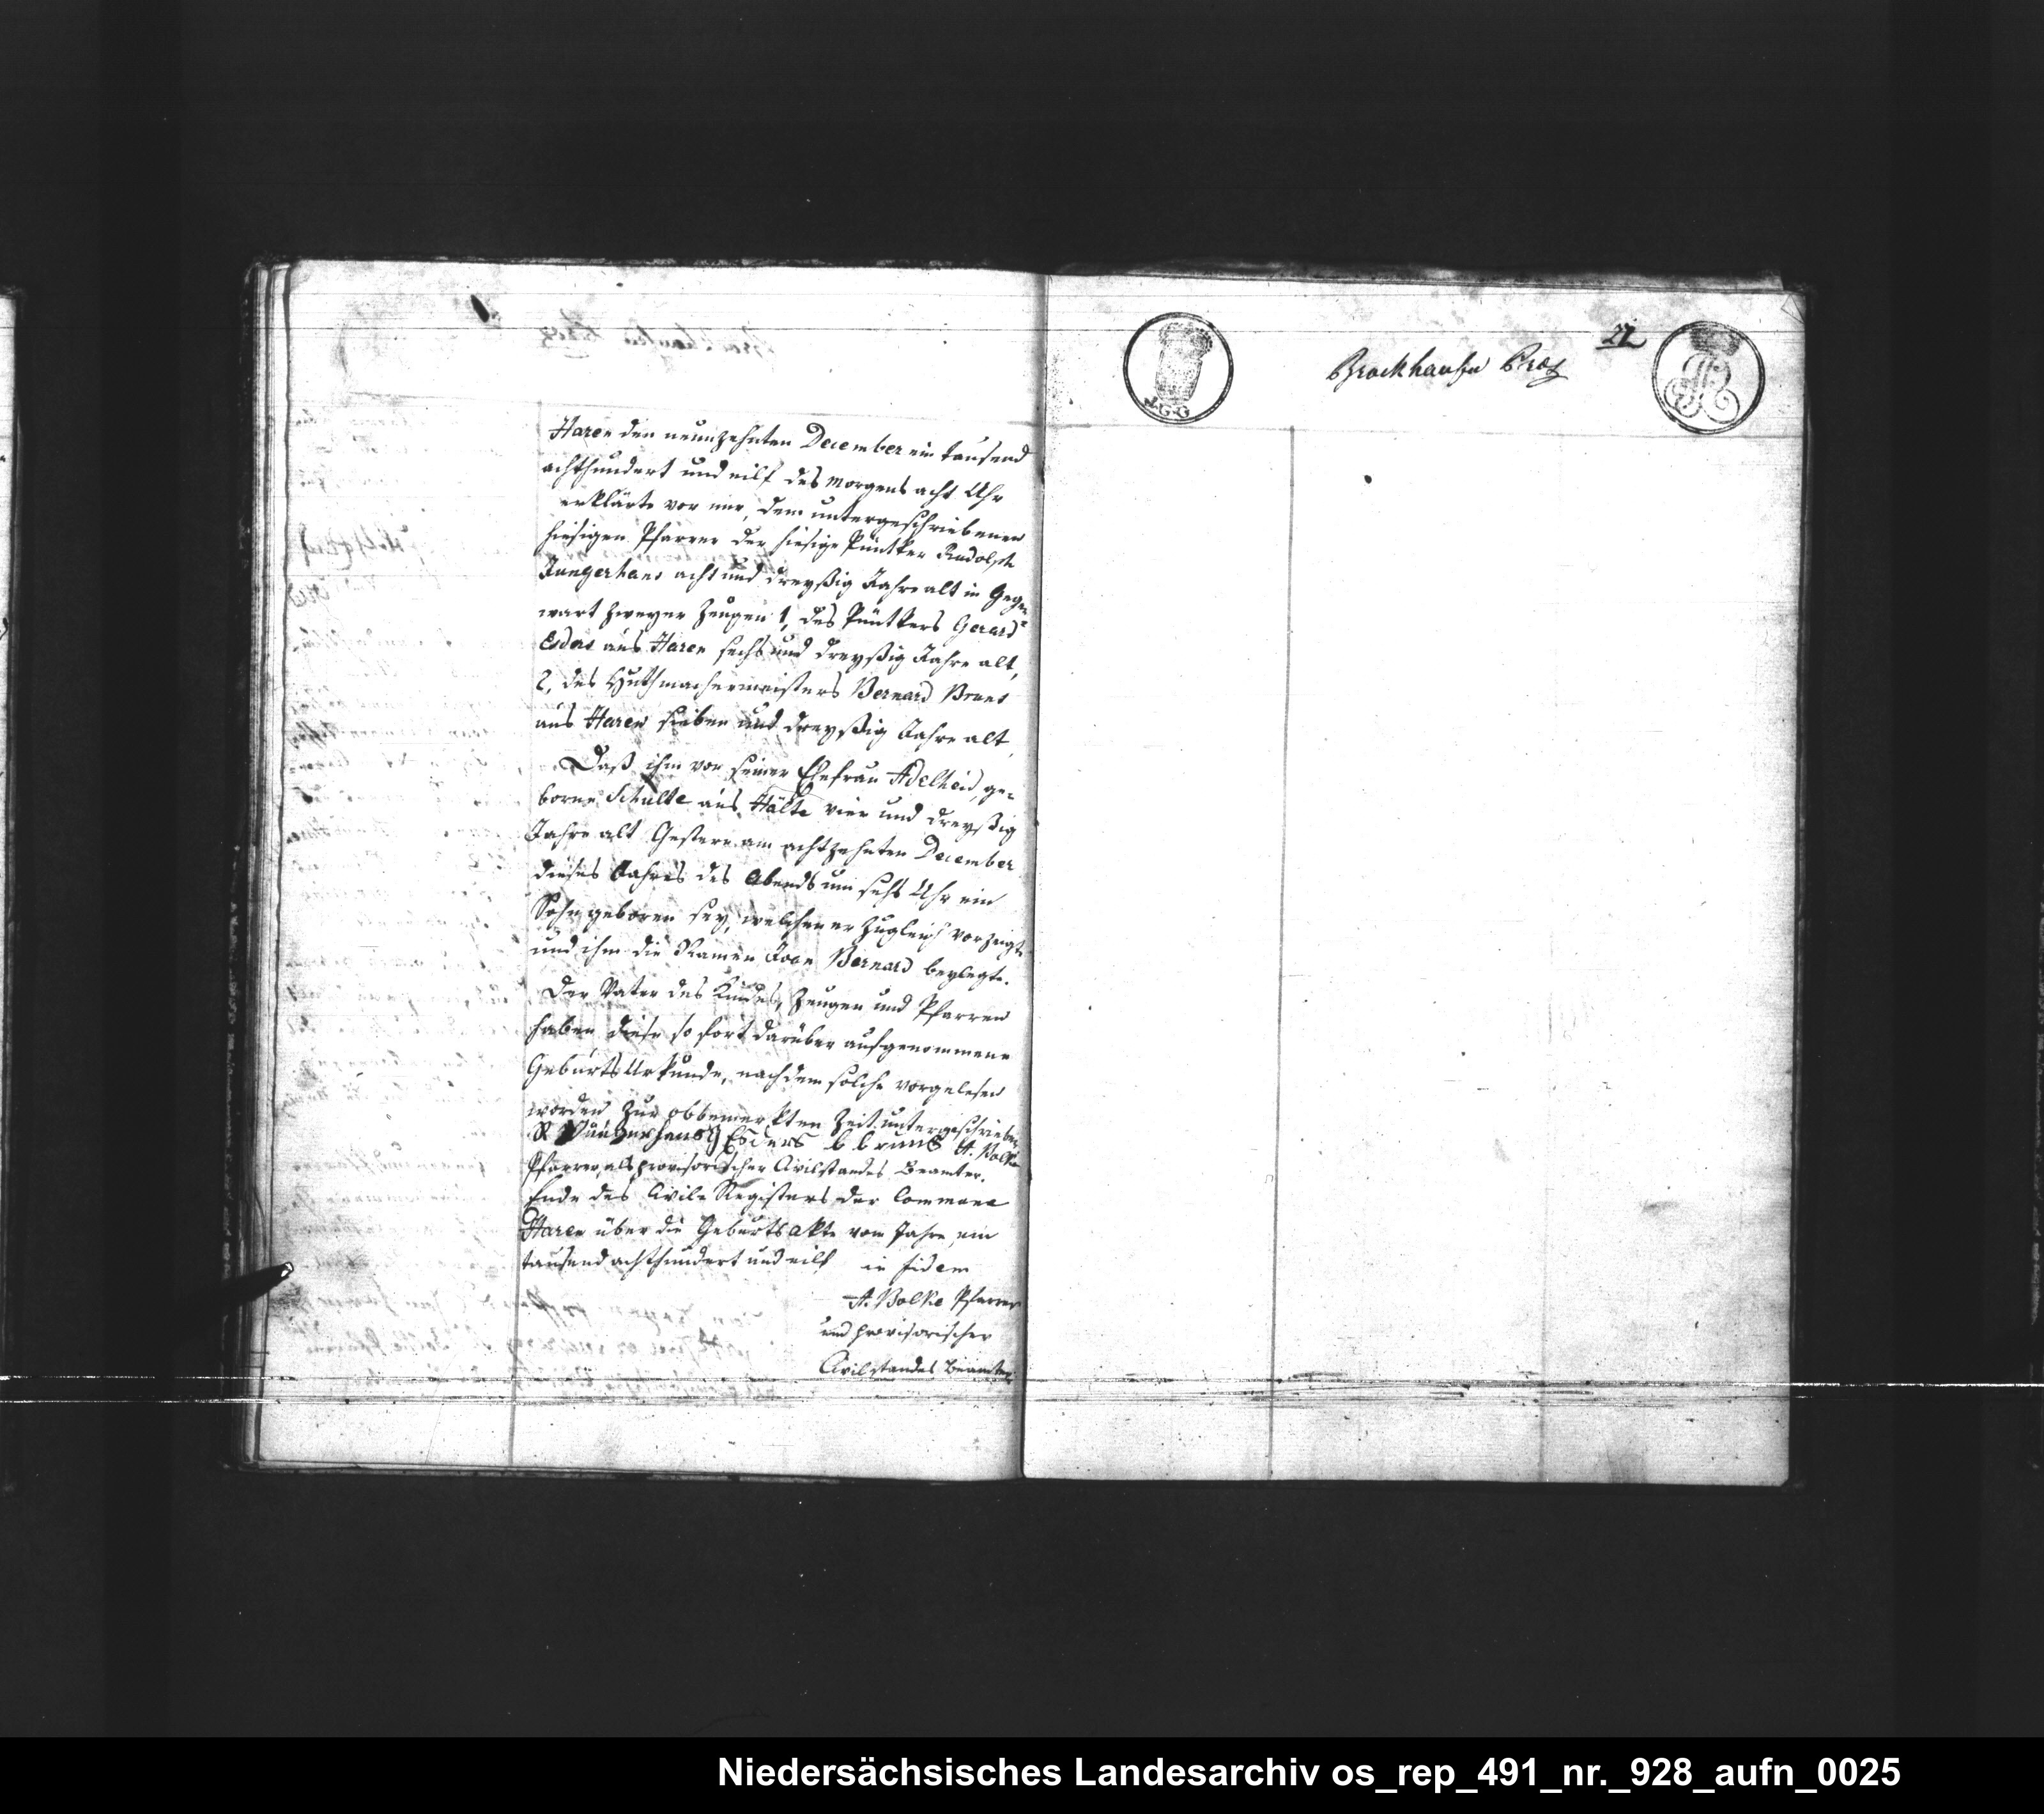 Haren den neunzehnten December ein tausend
achthundert und eilf des Morgens acht Uhr
erklärte vor mir, dem untergeschriebenen
hiesigen Pfarrer der hiesige Püntker Rudolph
Jungerhans acht und dreyßig Jahre alt in Gegen
wart zweyer Zeugen 1, des Püntkers Gerard
Esders aus Haren sechs und dreyßig Jahre alt,
2, des Huthmachermeisters Bernard Bruns
aus Haren sieben und dreyßig Jahre alt
Daß ihm von seiner Ehefrau Adelheid, ge-
borne Schulte aus Hälte vier und dreyßig
Jahre alt Gestern am achtzehnten December
dieses Jahres des Abends um sechs Uhr ein
Sohn geboren sey, welchen er zugleich vorzeigte
und ihm die Namen Joan Bernard beylegte.
Der Vater des Kindes, Zeugen und Pfarrer
haben diese so fort darüber aufgenommene
Geburts Urkunde, nachdem solche vorgelesen
worden zur obbemerkten Zeit untergeschrieben
R Jüngerhans G Esders b bruns A. Bolke
Pfarrer, als provisorischer Civilstandes Beamter.
Ende des Civile Registers der Commune
Haren über die Geburtsakte vom Jahre ein
tausend achthundert und eilf in fidem
A. Bolke Pfarrer
und provisorischer
Civilstandes Beamter
22
Brockhausen
J.G.G
Niedersächsisches Landesarchiv os_rep_491_nr._928_aufn_0025